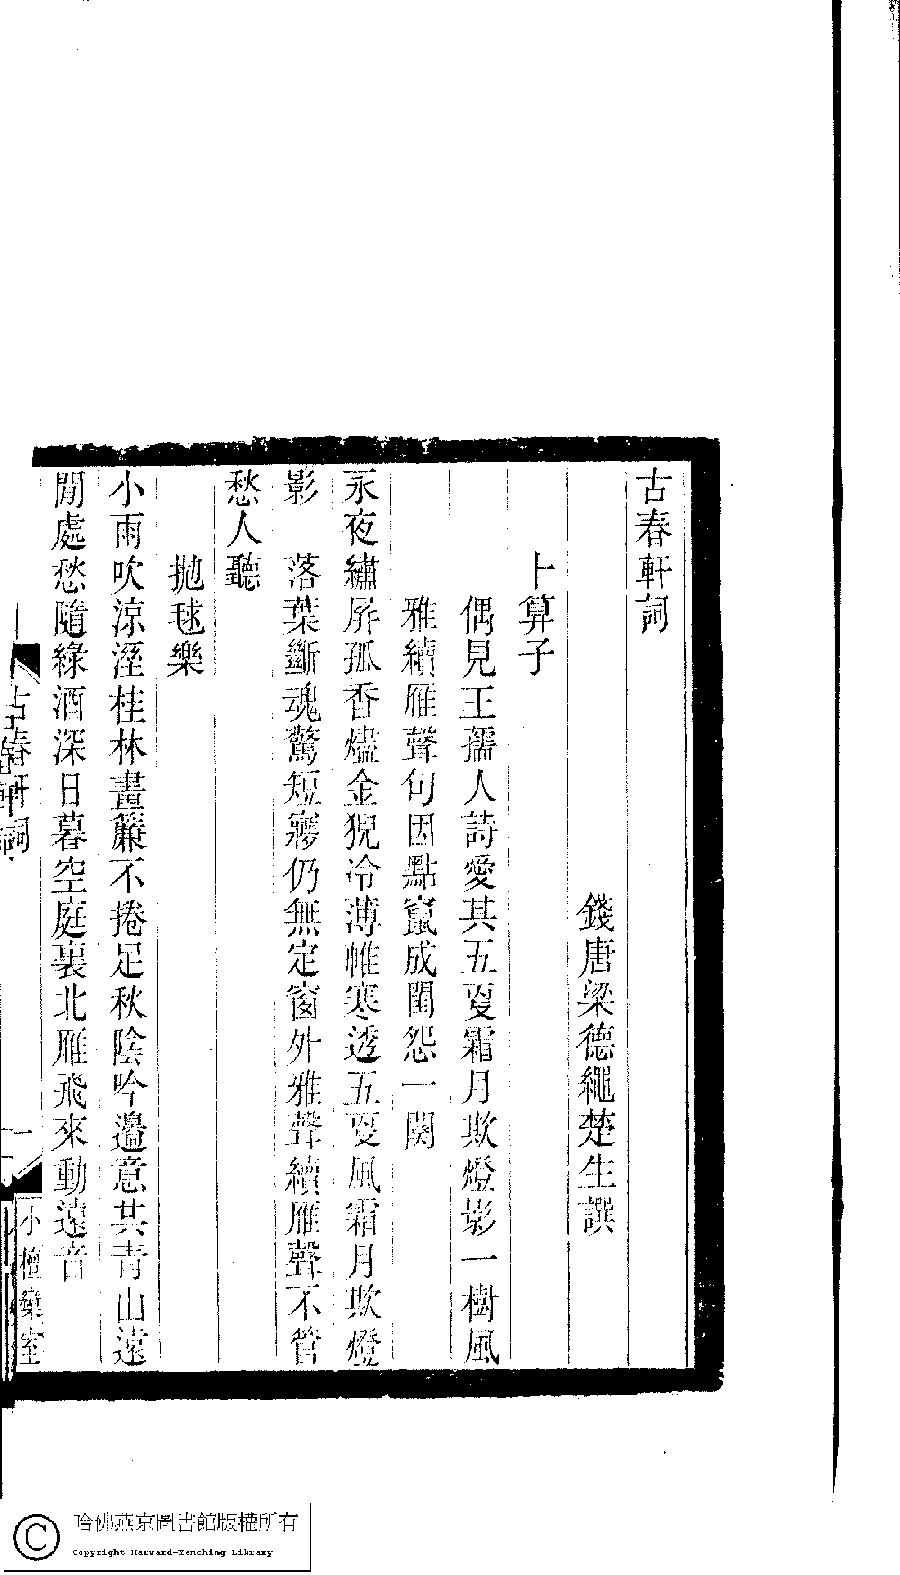 古春軒詞
錢唐梁德繩楚生譔
卜算子
偶見王孺人詩愛其五更霜月欺燈影一樹風
雅續雁聲句因點竄成閨怨一闋
永夜繡屏孤香燼金猊冷薄帷寒透五更風霜月欺燈
影　落葉斷魂驚短寱仍無定窗外雅聲續雁聲不管
愁人聽
拋毬樂
小雨吹涼溼桂林畫簾不捲足秋陰吟邊意共青山遠
閒處愁隨綠酒深日暮空庭裏北雁飛來動遠音
古春軒詞
一
小檀欒室
哈佛燕京圖書館版權所有
Copyright Harvard-Yenching Library